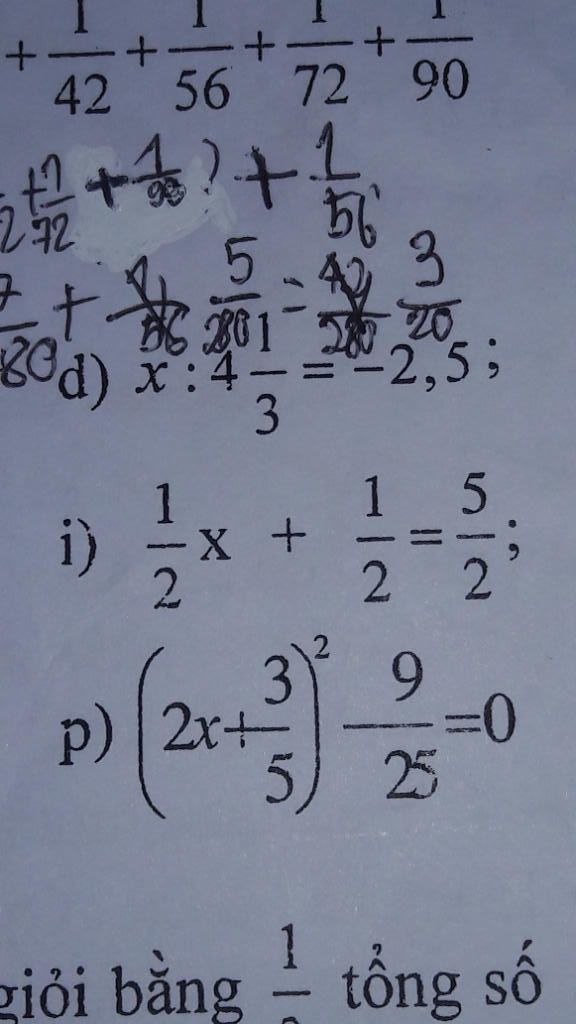 + 1/42 + 1/56 + 1/72 + 1/90
+ 1/72 + 1/90 ) + 1/56
+ 5/280 = 3/20
d) x : 4 1/3 = -2,5 ;
i) 1/2 x + 1/2 = 5/2 ;
p) (2x + 3/5)² - 9/25 = 0
giỏi bằng 1 tổng số